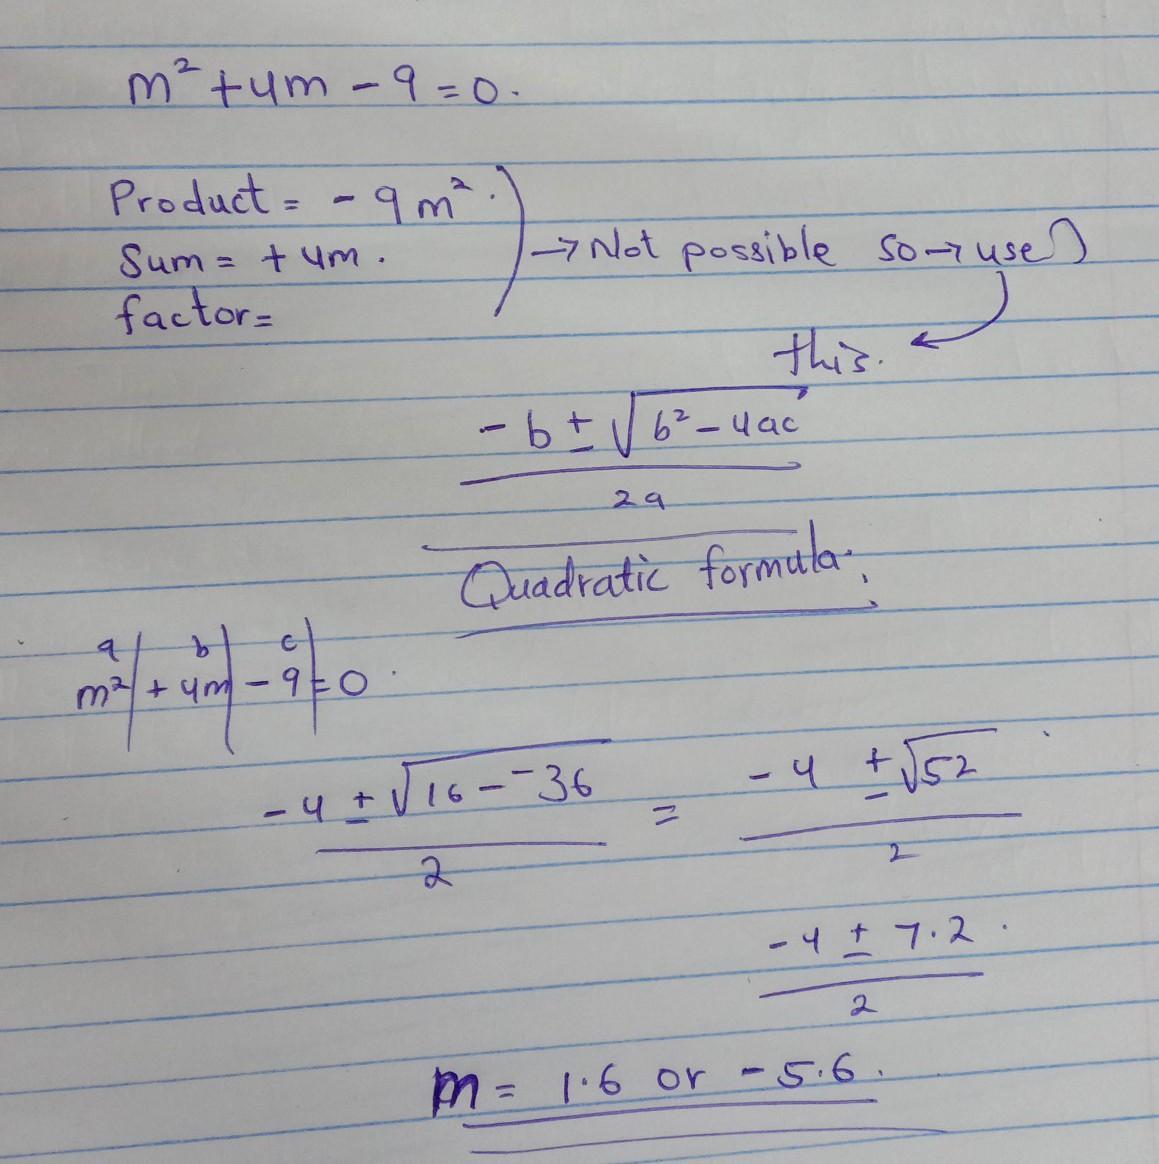 m² + 4m - 9 = 0.
Product = - 9m².
Sum = + 4m.
factor =
→ Not possible so → use
this.
-b ± √b² - 4ac
2a
Quadratic formula.
a b c
m² + 4m - 9 = 0
-4 ± √16 - ⁻36 = -4 ± √52
2 2
-4 ± 7.2
2
m = 1.6 or - 5.6.